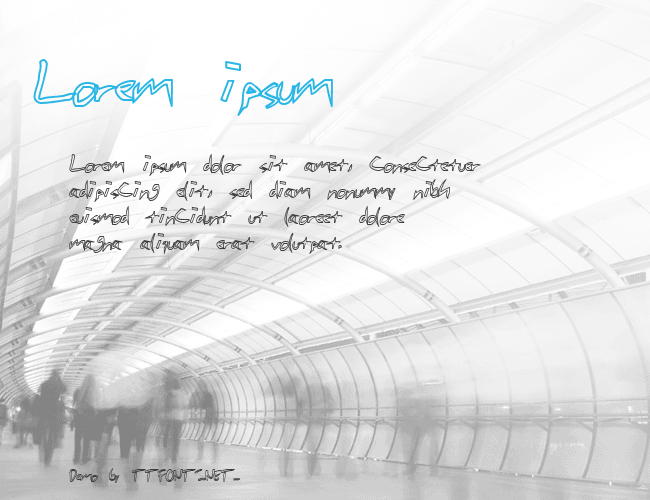 Lorem ipsum
Lorem ipsum dolor sit amet, ConseCtetuer
adipisCing elit, sed diam nonummy nibh
euismod tinCidunt ut laoreet dolore
magna aliquam erat volutpat.
Demo by TTFONTS.NET